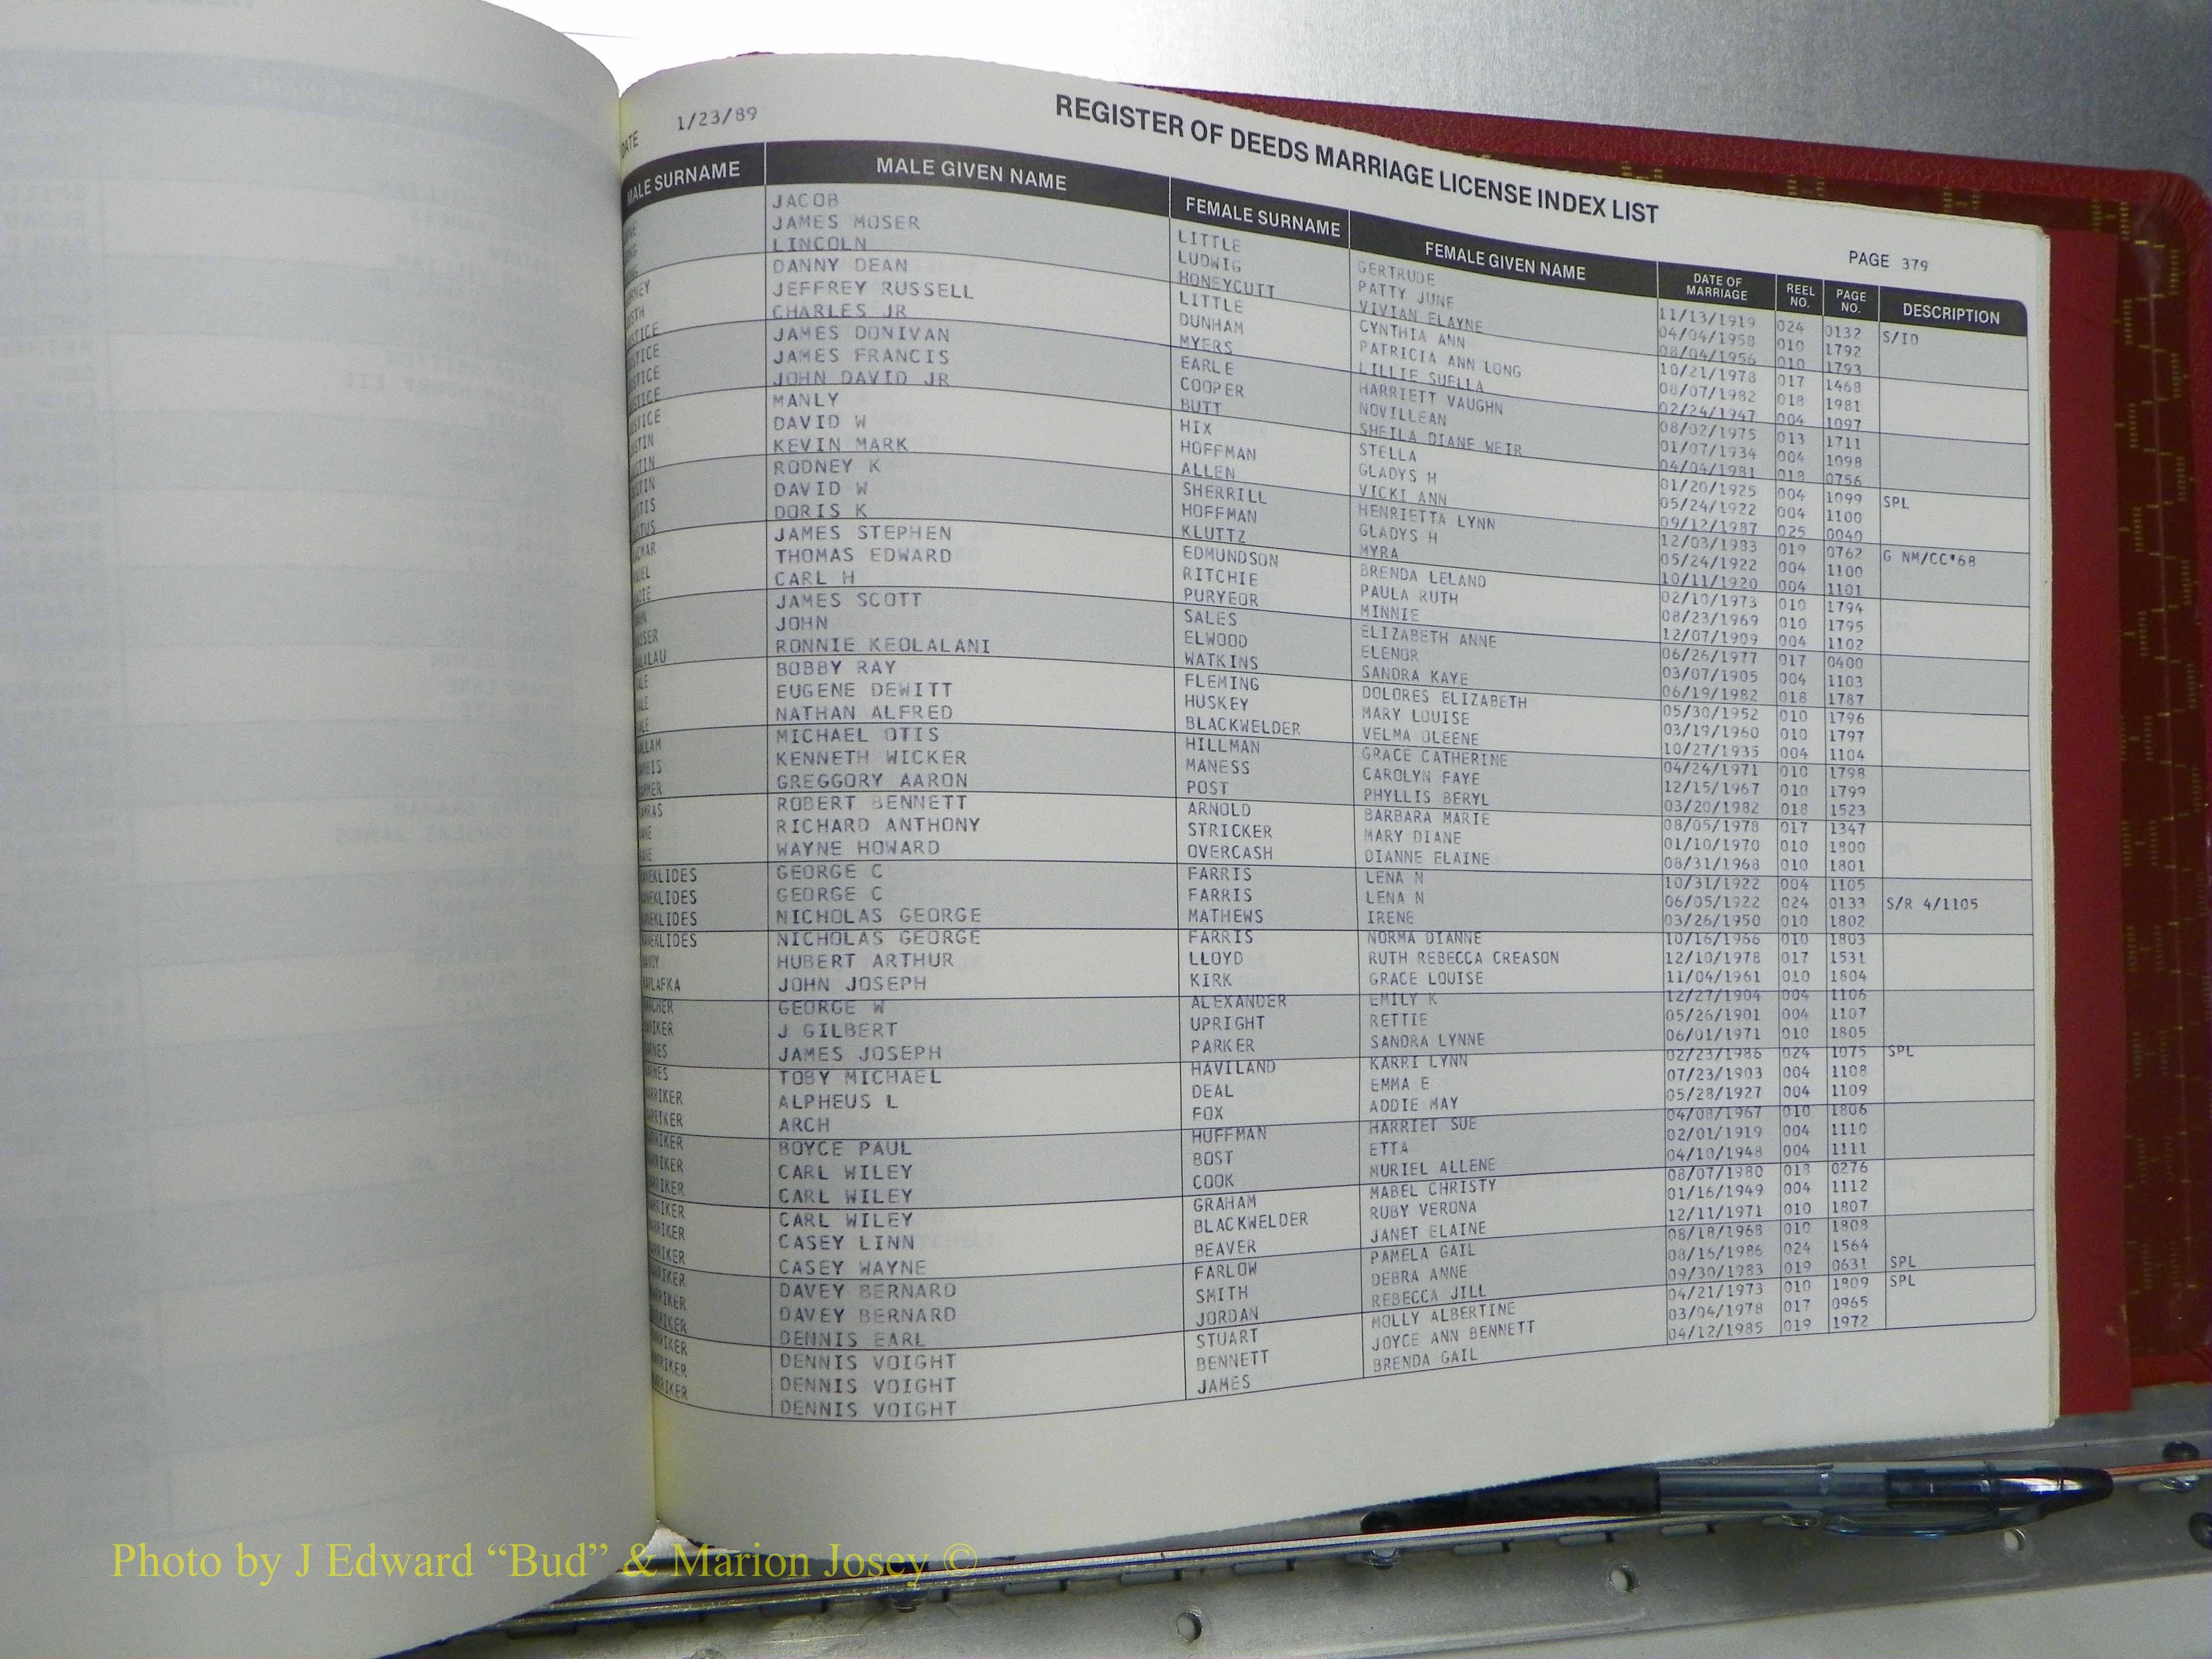 DATE 1/23/89
REGISTER OF DEEDS MARRIAGE LICENSE INDEX LIST
PAGE 379
MALE SURNAME MALE GIVEN NAME FEMALE SURNAME FEMALE GIVEN NAME DATE OF MARRIAGE REEL NO. PAGE NO. DESCRIPTION
JACOB LITTLE GERTRUDE 11/13/1919 024 0132 S/ID
JAMES MOSER LUDWIG PATTY JUNE 04/04/1958 010 1792
LINCOLN HONEYCUTT VIVIAN ELAYNE 08/04/1956 010 1793
DANNY DEAN LITTLE CYNTHIA ANN 10/21/1978 017 1468
JEFFREY RUSSELL DUNHAM PATRICIA ANN LONG 08/07/1982 018 1981
CHARLES JR MYERS LILLIE SUELLA 02/24/1947 004 1097
JAMES DONIVAN EARLE HARRIETT VAUGHN 08/02/1975 013 1711
JAMES FRANCIS COOPER NOVILLEAN 01/07/1934 004 1098
JOHN DAVID JR BUTT SHEILA DIANE WEIR 04/04/1981 018 0756
MANLY HIX STELLA 01/20/1925 004 1099 SPL
DAVID W HOFFMAN GLADYS H 05/24/1922 004 1100
KEVIN MARK ALLEN VICKI ANN 09/12/1987 025 0040
RODNEY K SHERRILL HENRIETTA LYNN 12/03/1983 019 0762 G NM/CC*68
DAVID W HOFFMAN GLADYS H 05/24/1922 004 1100
DORIS K KLUTTZ MYRA 10/11/1920 004 1101
JAMES STEPHEN EDMUNDSON BRENDA LELAND 02/10/1973 010 1794
THOMAS EDWARD RITCHIE PAULA RUTH 08/23/1969 010 1795
CARL H PURYEOR MINNIE 12/07/1909 004 1102
JAMES SCOTT SALES ELIZABETH ANNE 06/26/1977 017 0400
JOHN ELWOOD ELENOR 03/07/1905 004 1103
RONNIE KEOLALANI WATKINS SANDRA KAYE 06/19/1982 018 1787
BOBBY RAY FLEMING DOLORES ELIZABETH 05/30/1952 010 1796
EUGENE DEWITT HUSKEY MARY LOUISE 03/19/1960 010 1797
NATHAN ALFRED BLACKWELDER VELMA OLEENE 10/27/1935 004 1104
MICHAEL OTIS HILLMAN GRACE CATHERINE 04/24/1971 010 1798
KENNETH WICKER MANESS CAROLYN FAYE 12/15/1967 010 1799
GREGGORY AARON POST PHYLLIS BERYL 03/20/1982 018 1523
ROBERT BENNETT ARNOLD BARBARA MARIE 08/05/1978 017 1347
RICHARD ANTHONY STRICKER MARY DIANE 01/10/1970 010 1800
WAYNE HOWARD OVERCASH DIANNE ELAINE 08/31/1968 010 1801
KANEKLIDES GEORGE C FARRIS LENA N 10/31/1922 004 1105
KANEKLIDES GEORGE C FARRIS LENA N 06/05/1922 024 0133 S/R 4/1105
KANEKLIDES NICHOLAS GEORGE MATHEWS IRENE 03/26/1950 010 1802
KANEKLIDES NICHOLAS GEORGE FARRIS NORMA DIANNE 10/16/1966 010 1803
HUBERT ARTHUR LLOYD RUTH REBECCA CREASON 12/10/1978 017 1531
JOHN JOSEPH KIRK GRACE LOUISE 11/04/1961 010 1804
GEORGE W ALEXANDER EMILY K 12/27/1904 004 1106
J GILBERT UPRIGHT RETTIE 05/26/1901 004 1107
JAMES JOSEPH PARKER SANDRA LYNNE 06/01/1971 010 1805
TOBY MICHAEL HAVILAND KARRI LYNN 02/23/1986 024 1075 SPL
ALPHEUS L DEAL EMMA E 07/23/1903 004 1108
ARCH FOX ADDIE MAY 05/28/1927 004 1109
BOYCE PAUL HUFFMAN HARRIET SUE 04/08/1967 010 1806
CARL WILEY BOST ETTA 02/01/1919 004 1110
CARL WILEY COOK MURIEL ALLENE 04/10/1948 004 1111
CARL WILEY GRAHAM MABEL CHRISTY 08/07/1980 018 0276
CASEY LINN BLACKWELDER RUBY VERONA 01/16/1949 004 1112
CASEY WAYNE BEAVER JANET ELAINE 12/11/1971 010 1807
DAVEY BERNARD FARLOW PAMELA GAIL 08/18/1968 010 1808
DAVEY BERNARD SMITH DEBRA ANNE 08/16/1986 024 1564
DENNIS EARL JORDAN REBECCA JILL 09/30/1983 019 0631 SPL
DENNIS VOIGHT STUART MOLLY ALBERTINE 04/21/1973 010 1809 SPL
DENNIS VOIGHT BENNETT JOYCE ANN BENNETT 03/04/1978 017 0965
DENNIS VOIGHT JAMES BRENDA GAIL 04/12/1985 019 1972
Photo by J Edward “Bud” & Marion Josey ©